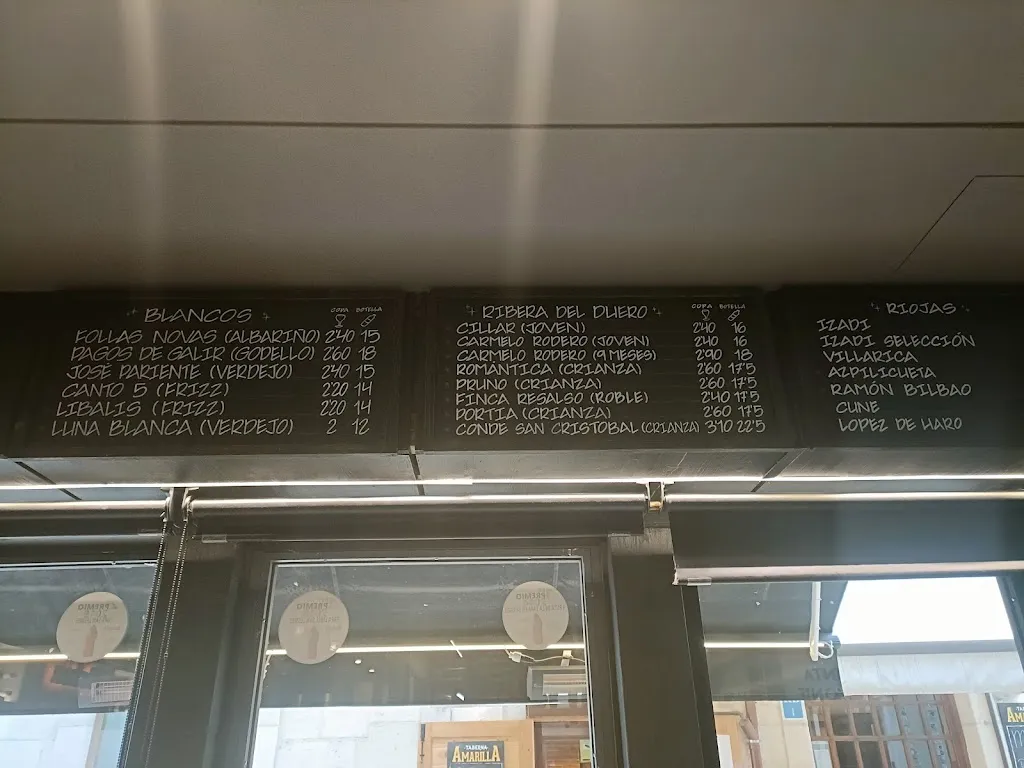 BLANCOS COPA BOTELLA
FOLLAS NOVAS (ALBARIÑO) 240 15
PAGOS DE GALIR (GODELLO) 260 18
JOSÉ PARIENTE (VERDEJO) 240 15
CANTO 5 (FRIZZ) 220 14
LIBALIS (FRIZZ) 220 14
LUNA BLANCA (VERDEJO) 2 12
RIBERA DEL DUERO COPA BOTELLA
CILLAR (JOVEN) 240 16
CARMELO RODERO (JOVEN) 240 16
CARMELO RODERO (9 MESES) 290 18
ROMÁNTICA (CRIANZA) 260 17'5
PRUNO (CRIANZA) 260 17'5
FINCA RESALSO (ROBLE) 2'40 17'5
PORTIA (CRIANZA) 2'60 17'5
CONDE SAN CRISTOBAL (CRIANZA) 310 22'5
RIOJAS
IZADI
IZADI SELECCIÓN
VILLARICA
AZPILICUETA
RAMÓN BILBAO
CUNE
LOPEZ DE HARO
PREMIO
TABERNA
AMARILLA